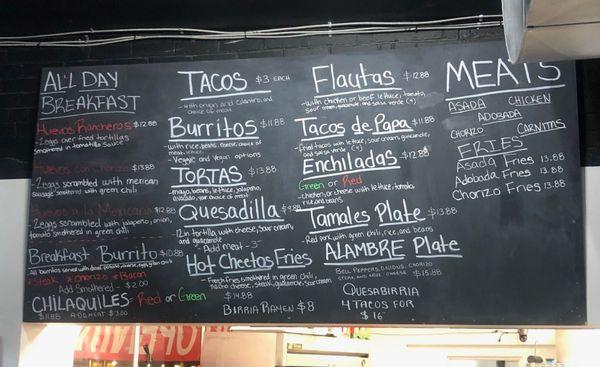 ALL DAY
BREAKFAST
Huevos Rancheros $12.88
- 2 eggs over fried tortillas
smothered in tomatillo sauce
Huevos con Chorizo $13.88
- 2 eggs scrambled with mexican
sausage smothered with green chili
Huevos a la Mexicana $12.88
- 2 eggs scrambled with jalapeno, onion,
tomato smothered in green chili
Breakfast Burrito $10.88
*Steak *Chorizo *Bacon
Add Smothered - $2.00
CHILAQUILES - Red or Green
$11.88 ADD MEAT $3.00
TACOS $3 EACH
- with onion and cilantro, and
choice of meat
Burritos $11.88
- with rice, beans, cheese, choice of
meat, lettuce,
- Veggie and Vegan options
TORTAS $13.88
- mayo, beans, lettuce, jalapeno,
avocado, your choice of meat
Quesadilla $9.88
12in tortilla with cheese, sour cream,
and guacamole
- Add meat - 3
Hot Cheetos Fries
- Fresh fries, smothered in green chili,
nacho cheese, steak, guacamole, sour cream
$14.88
BIRRIA RAMEN $8
Flautas $12.88
- with chicken or beef, lettuce, tomato,
sour cream, guacamole, and salsa verde (4)
Tacos de Papa $11.88
- Fried tacos with lettuce, sour cream, guacamole,
and salsa verde (4)
Enchiladas $12.88
Green or Red
- chicken, or cheese with lettuce, tomato,
rice, and beans
Tamales Plate $13.88
- Red pork with green chili, rice, and beans
ALAMBRE Plate
BELL PEPPERS, ONIONS, CHORIZO
STEAK, AND CHEESE $15.88
QUESABIRRIA
4 TACOS FOR
$16
MEATS
ASADA CHICKEN
ADOBADA
CHORIZO CARNITAS
FRIES
Asada Fries 13.88
Adobada Fries 13.88
Chorizo Fries 13.88